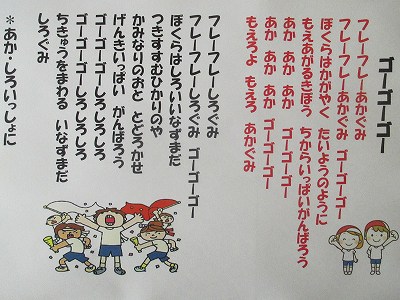 ゴーゴーゴー
フレーフレーあかぐみ
フレーフレーあかぐみ ゴーゴーゴー
ぼくらはかがやく たいようのように
もえあがるきぼう ちからいっぱいがんばろう
あか あか あか ゴーゴーゴー
あか あか あか ゴーゴーゴー
もえろよ もえろ あかぐみ
フレーフレーしろぐみ
フレーフレーしろぐみ ゴーゴーゴー
ぼくらはしろいいなずまだ
つきすすむひかりのや
かみなりのおと とどろかせ
げんきいっぱい がんばろう
ゴーゴーゴーしろしろしろ
ゴーゴーゴーしろしろしろ
ちきゅうをまわる いなずまだ
しろぐみ
*あか・しろいっしょに